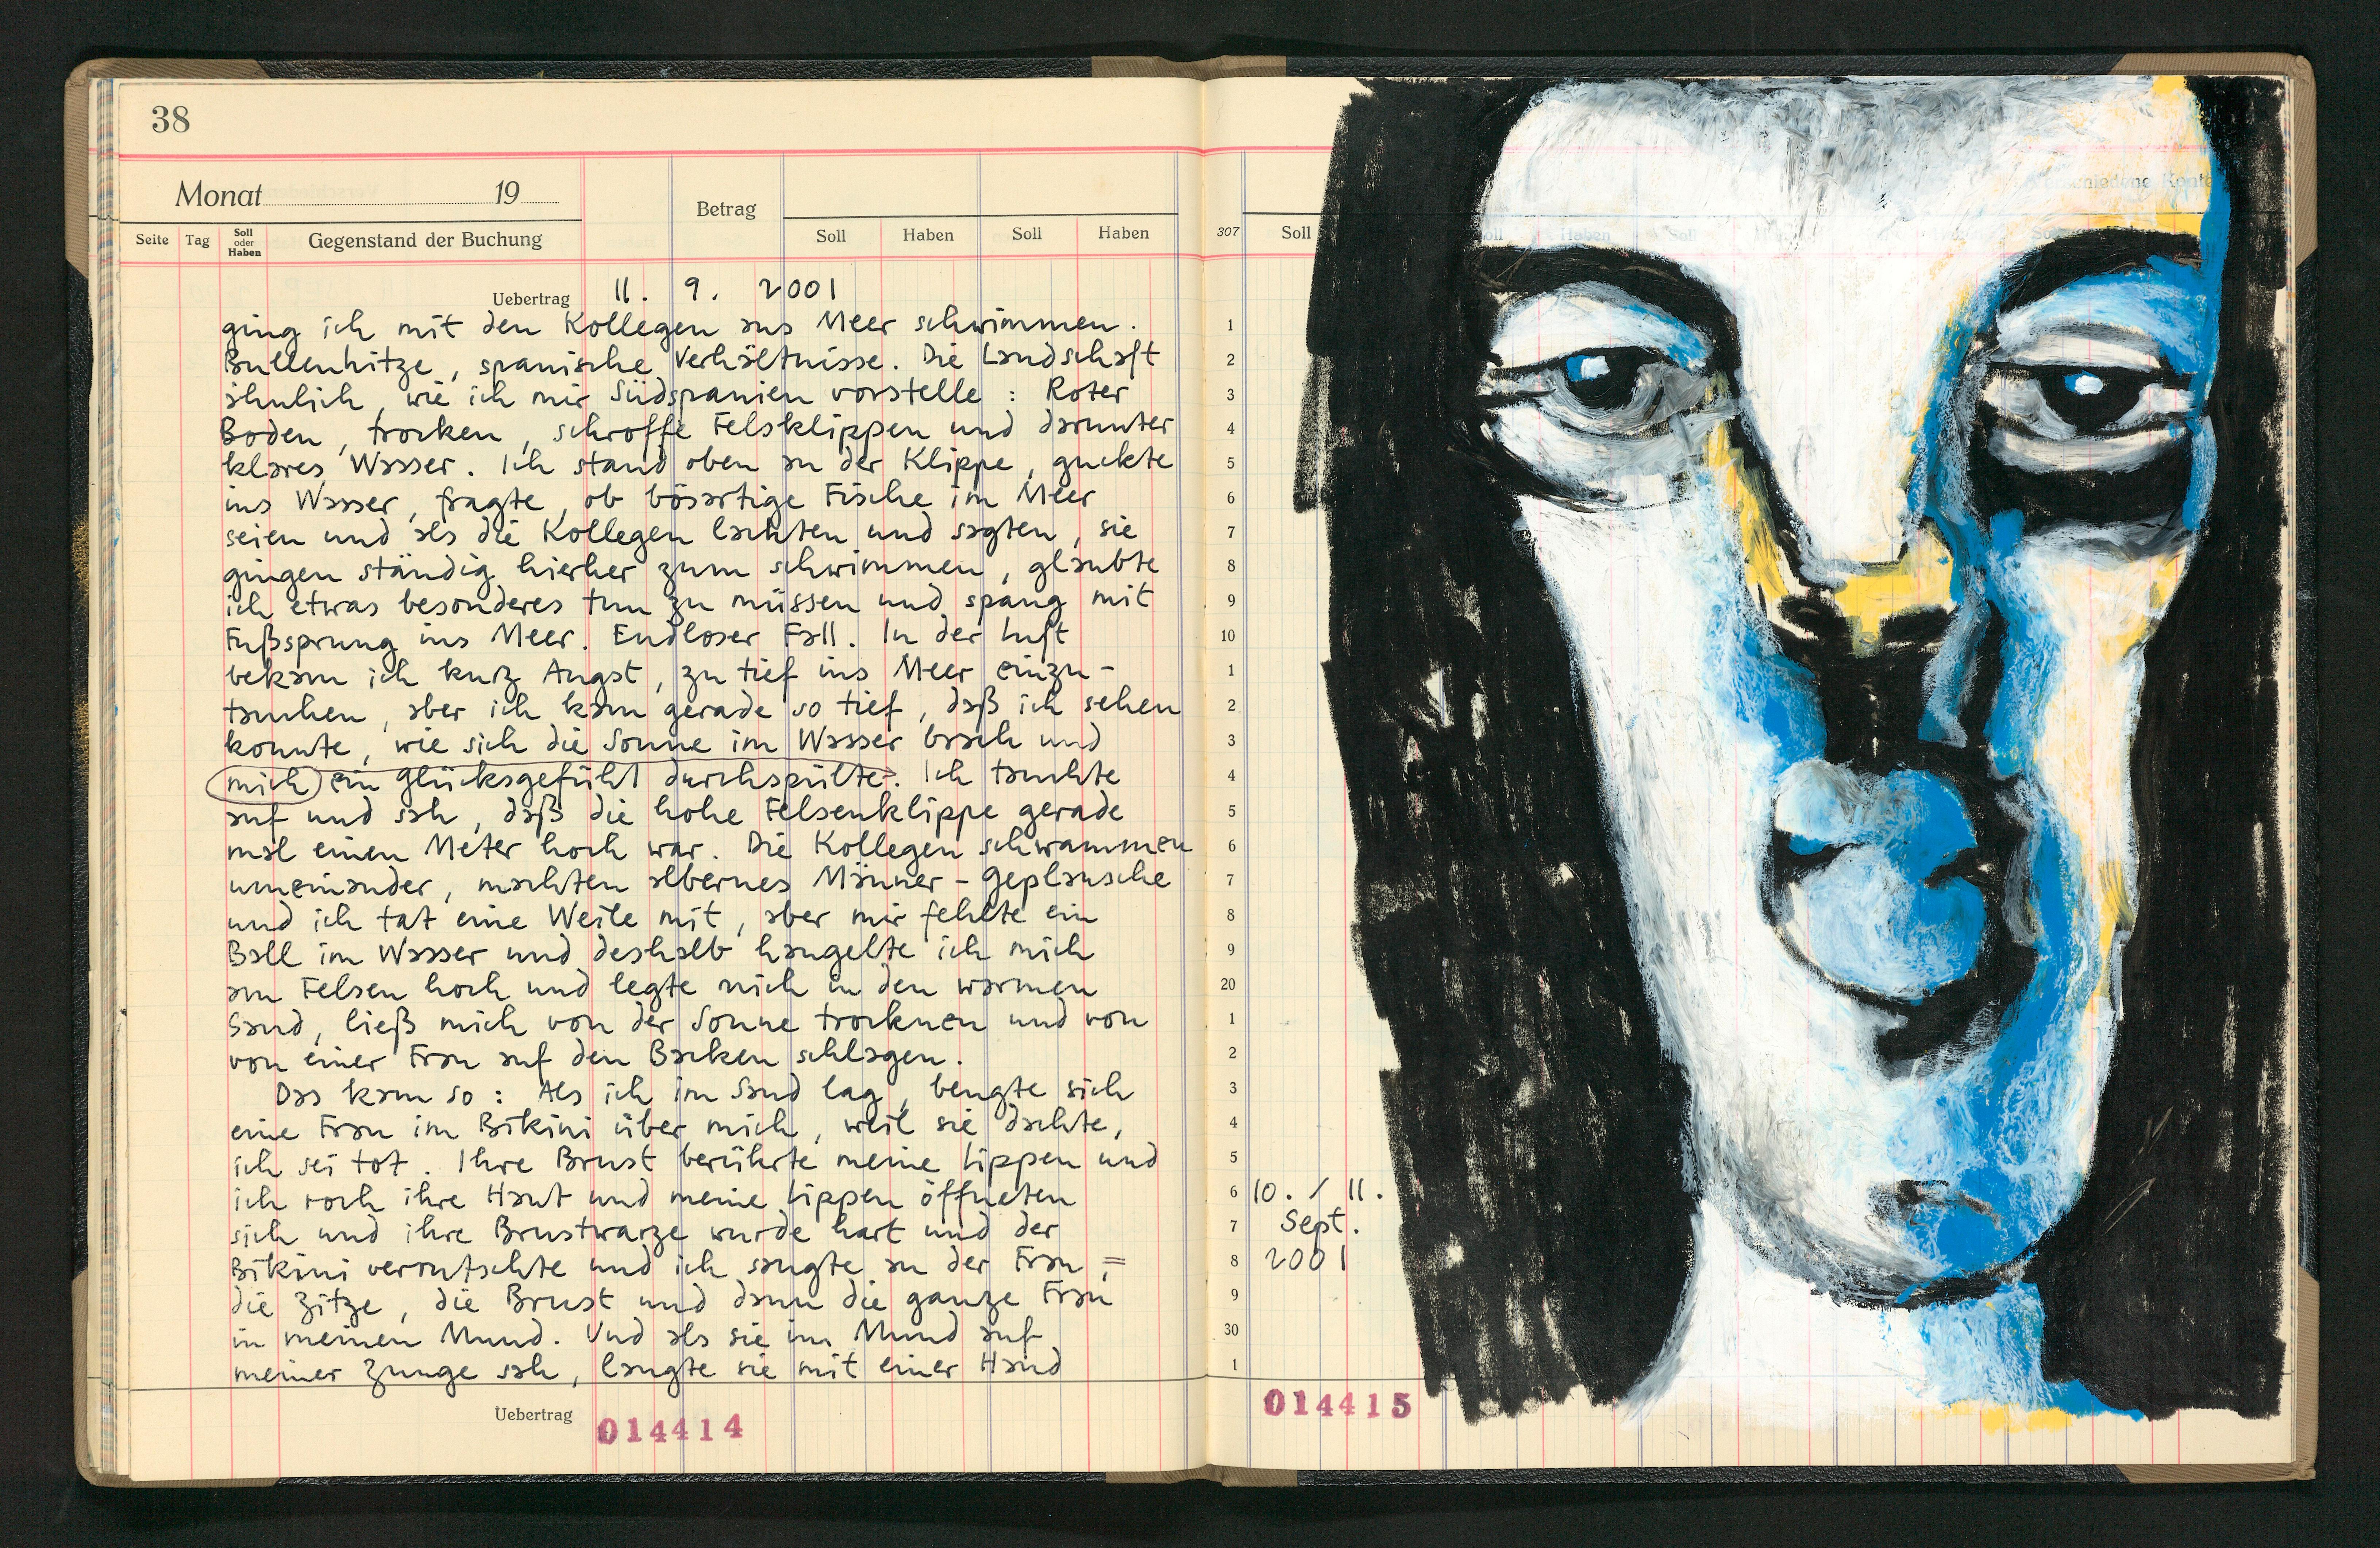 38
Monat 19
Betrag
Seite Tag Soll oder Haben Gegenstand der Buchung Soll Haben Soll Haben
Uebertrag 11. 9. 2001
ging ich mit den Kollegen ans Meer schwimmen.
Bullenhitze, spanische Verhältnisse. Die Landschaft
ähnlich, wie ich mir Südspanien vorstelle : Roter
Boden, trocken, schroffe Felsklippen und darunter
klares Wasser. Ich stand oben an der Klippe, guckte
ins Wasser, fragte, ob bösartige Fische im Meer
seien und als die Kollegen lachten und sagten, sie
gingen ständig hierher zum schwimmen, glaubte
ich etwas besonderes tun zu müssen und spang mit
Fußsprung ins Meer. Endloser Fall. In der Luft
bekam ich kurz Angst, zu tief ins Meer einzu-
tauchen, aber ich kam gerade so tief, daß ich sehen
konnte, wie sich die Sonne im Wasser brach und
mich ein Glücksgefühl durchspülte. Ich tauchte
auf und sah, daß die hohe Felsenklippe gerade
mal einen Meter hoch war. Die Kollegen schwammen
umeinander, machten albernes Männer-Geplansche
und ich tat eine Weile mit, aber mir fehlte ein
Ball im Wasser und deshalb hangelte ich mich
am Felsen hoch und legte mich in den warmen
Sand, ließ mich von der Sonne trocknen und von
von einer Frau auf den Backen schlagen.
Das kam so : Als ich im Sand lag, beugte sich
eine Frau im Bikini über mich, weil sie dachte,
ich sei tot. Ihre Brust berührte meine Lippen und
ich roch ihre Haut und meine Lippen öffneten
sich und ihre Brustwarze wurde hart und der
Bikini verrutschte und ich saugte an der Frau,=
die Zitze, die Brust und dann die ganze Frau
in meinen Mund. Und als sie im Mund auf
meiner Zunge sah, langte sie mit einer Hand
Uebertrag 014414
307 Soll Soll Haben Soll
1
2
3
4
5
6
7
8
9
10
1
2
3
4
5
6
7
8
9
20
1
2
3
4
5
6 10. / 11.
7 Sept.
8 2001
9
30
1
014415